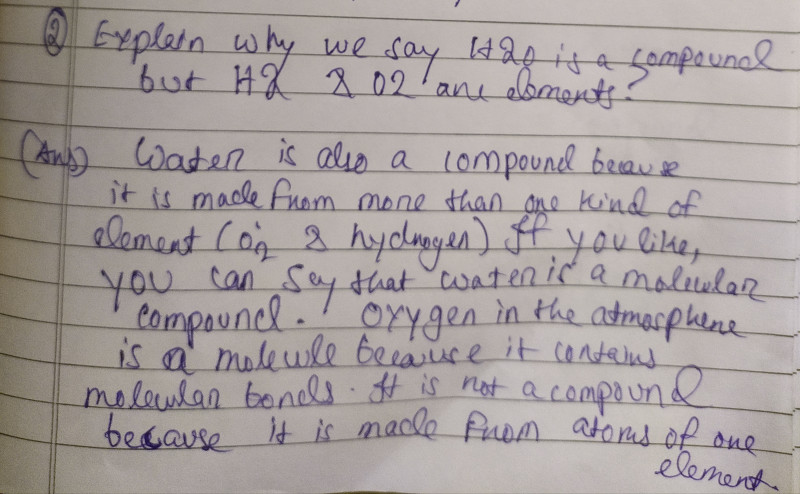 ② Explain why we say H2O is a compound
but H2 & O2 are elements?
(Ans) Water is also a compound because
it is made from more than one kind of
element ( & hydrogen) If you like,
you can say that water is a molecular
compound. Oxygen in the atmosphere
is a molecule because it contains
molecular bonds. It is not a compound
because it is made from atoms of one
element.